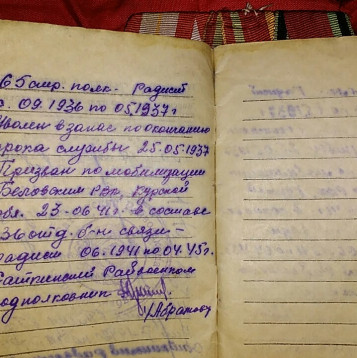 65 стр. полк. Радист
с. 09.1936 по 05.1937г
Уволен в запас по окончанию
срока службы 25.05.1937
Призван по мобилизации
Беловским РВК, Курской
обл. 23-06.41г. в составе
36 отд. б-н связи -
радист 06.1941 по 04.45г.
Саткинский Райвоенком
подполковник
/Абрамов/